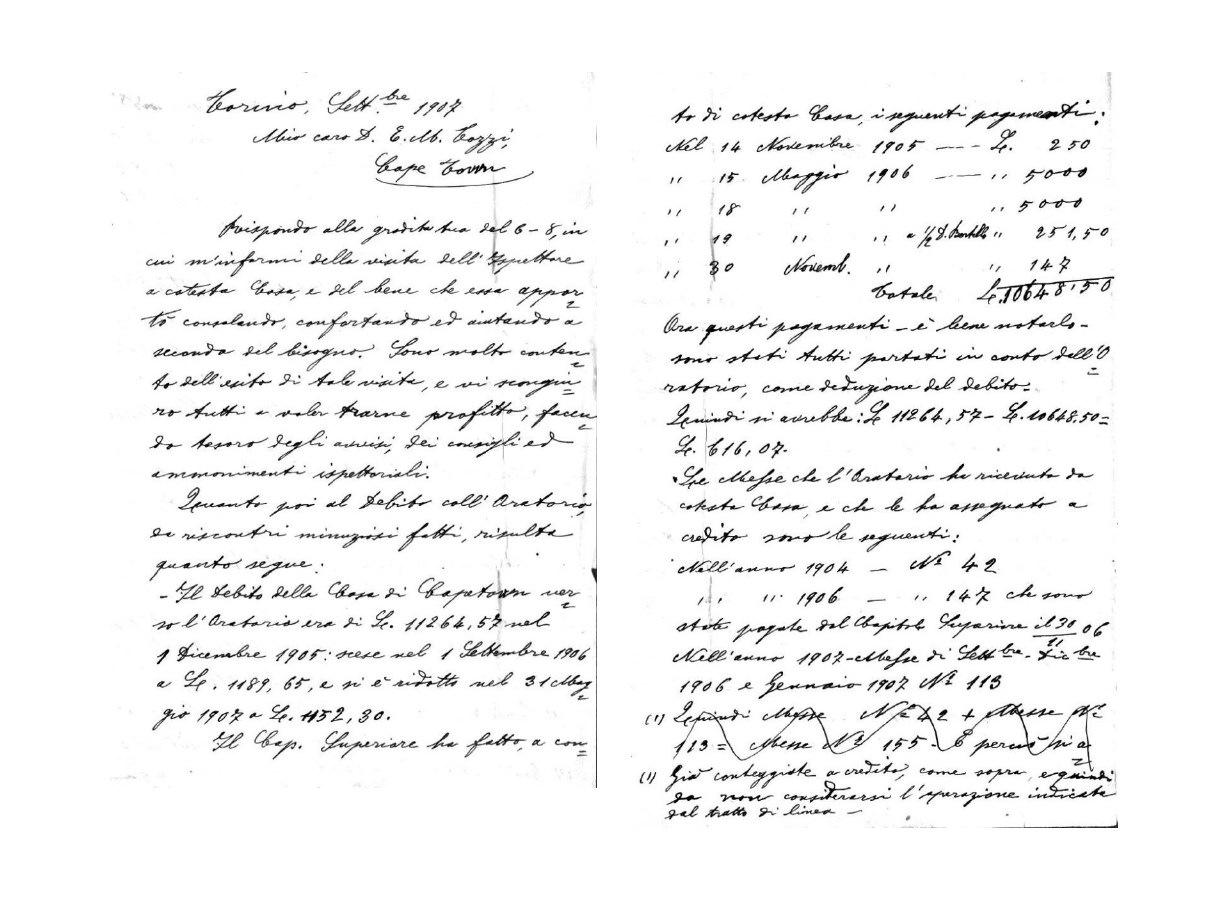 Torino, Sett.bre 1907
Mio caro D. E. M. Tozzi,
Cape Town
Rispondo alla gradita tua del 6-8, in
cui m'informi della visita dell'Ispettore
a cotesta Casa, e del bene che essa appor=
tò consolando, confortando ed aiutando a
seconda del bisogno. Sono molto conten=
to dell'esito di tale visita, e vi scongiu=
ro tutti a voler trarne profitto, facen=
do tesoro degli avvisi, dei consigli ed
ammonimenti ispettoriali.
Quanto poi al Debito coll'Oratorio,
da riscontri minuziosi fatti, risulta
quanto segue:
- Il Debito della Casa di Capetown ver=
so l'Oratorio era di L. 11264,57 nel
1 Dicembre 1905: scese nel 1 Settembre 1906
a L. 1189,65, e si è ridotto nel 31 Mag=
gio 1907 a L. 1152,30.
Il Cap. Superiore ha fatto, a con=
to di cotesta Casa, i seguenti pagamenti:
Nel 14 Novembre 1905 --- L. 250
" 15 Maggio 1906 --- " 5000
" 18 " " " 5000
" 19 " " a 1/2 D. " 251,50
" 30 Novemb. " " 147
Totale L. 10648,50
Ora questi pagamenti - è bene notarlo -
sono stati tutti portati in conto dell'O=
ratorio, come deduzione del debito.
Quindi si avrebbe: L. 11264,57 - L. 10648.50=
L. 616,07.
Le Messe che l'Oratorio ha ricevuto da
cotesta Casa, e che le ha assegnato a
credito sono le seguenti:
Nell'anno 1904 - N° 42
" " 1906 - " 147 che sono
state pagate dal Capitolo Superiore il 30/11 06
Nell'anno 1907 - Messe di Sett.bre - Dicbre
1906 e Gennaio 1907 N° 113
(1) Quindi Messe N° 42 + Messe N°
113 = Messe N° 155 - E perciò si a=
(1) Già conteggiate a credito, come sopra, e quindi
da non considerarsi l'operazione indicata
dal tratto di linea -